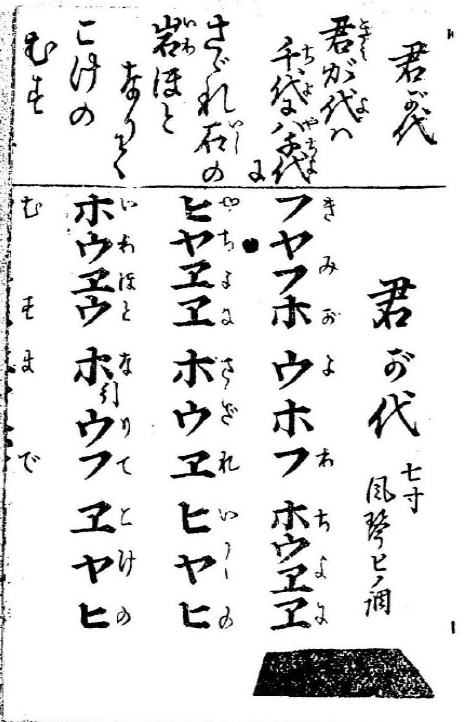 君が代
君が代ハ
きみ よ
千代に八千代に
ちよ やちよ
さゞれ石の
いし
岩ほと
いわ
なりて
こけの
むす
君が代 七寸 風琴ヒノ調
フヤフホウホフホウヱヱ
きみがよわちよに
ヒヤヱヱホウヱヒヤヒ
やちよにさゞれいしの
ホウヱウホ引ウフヱヤヒ
いわほとなりてこけの
むすまで